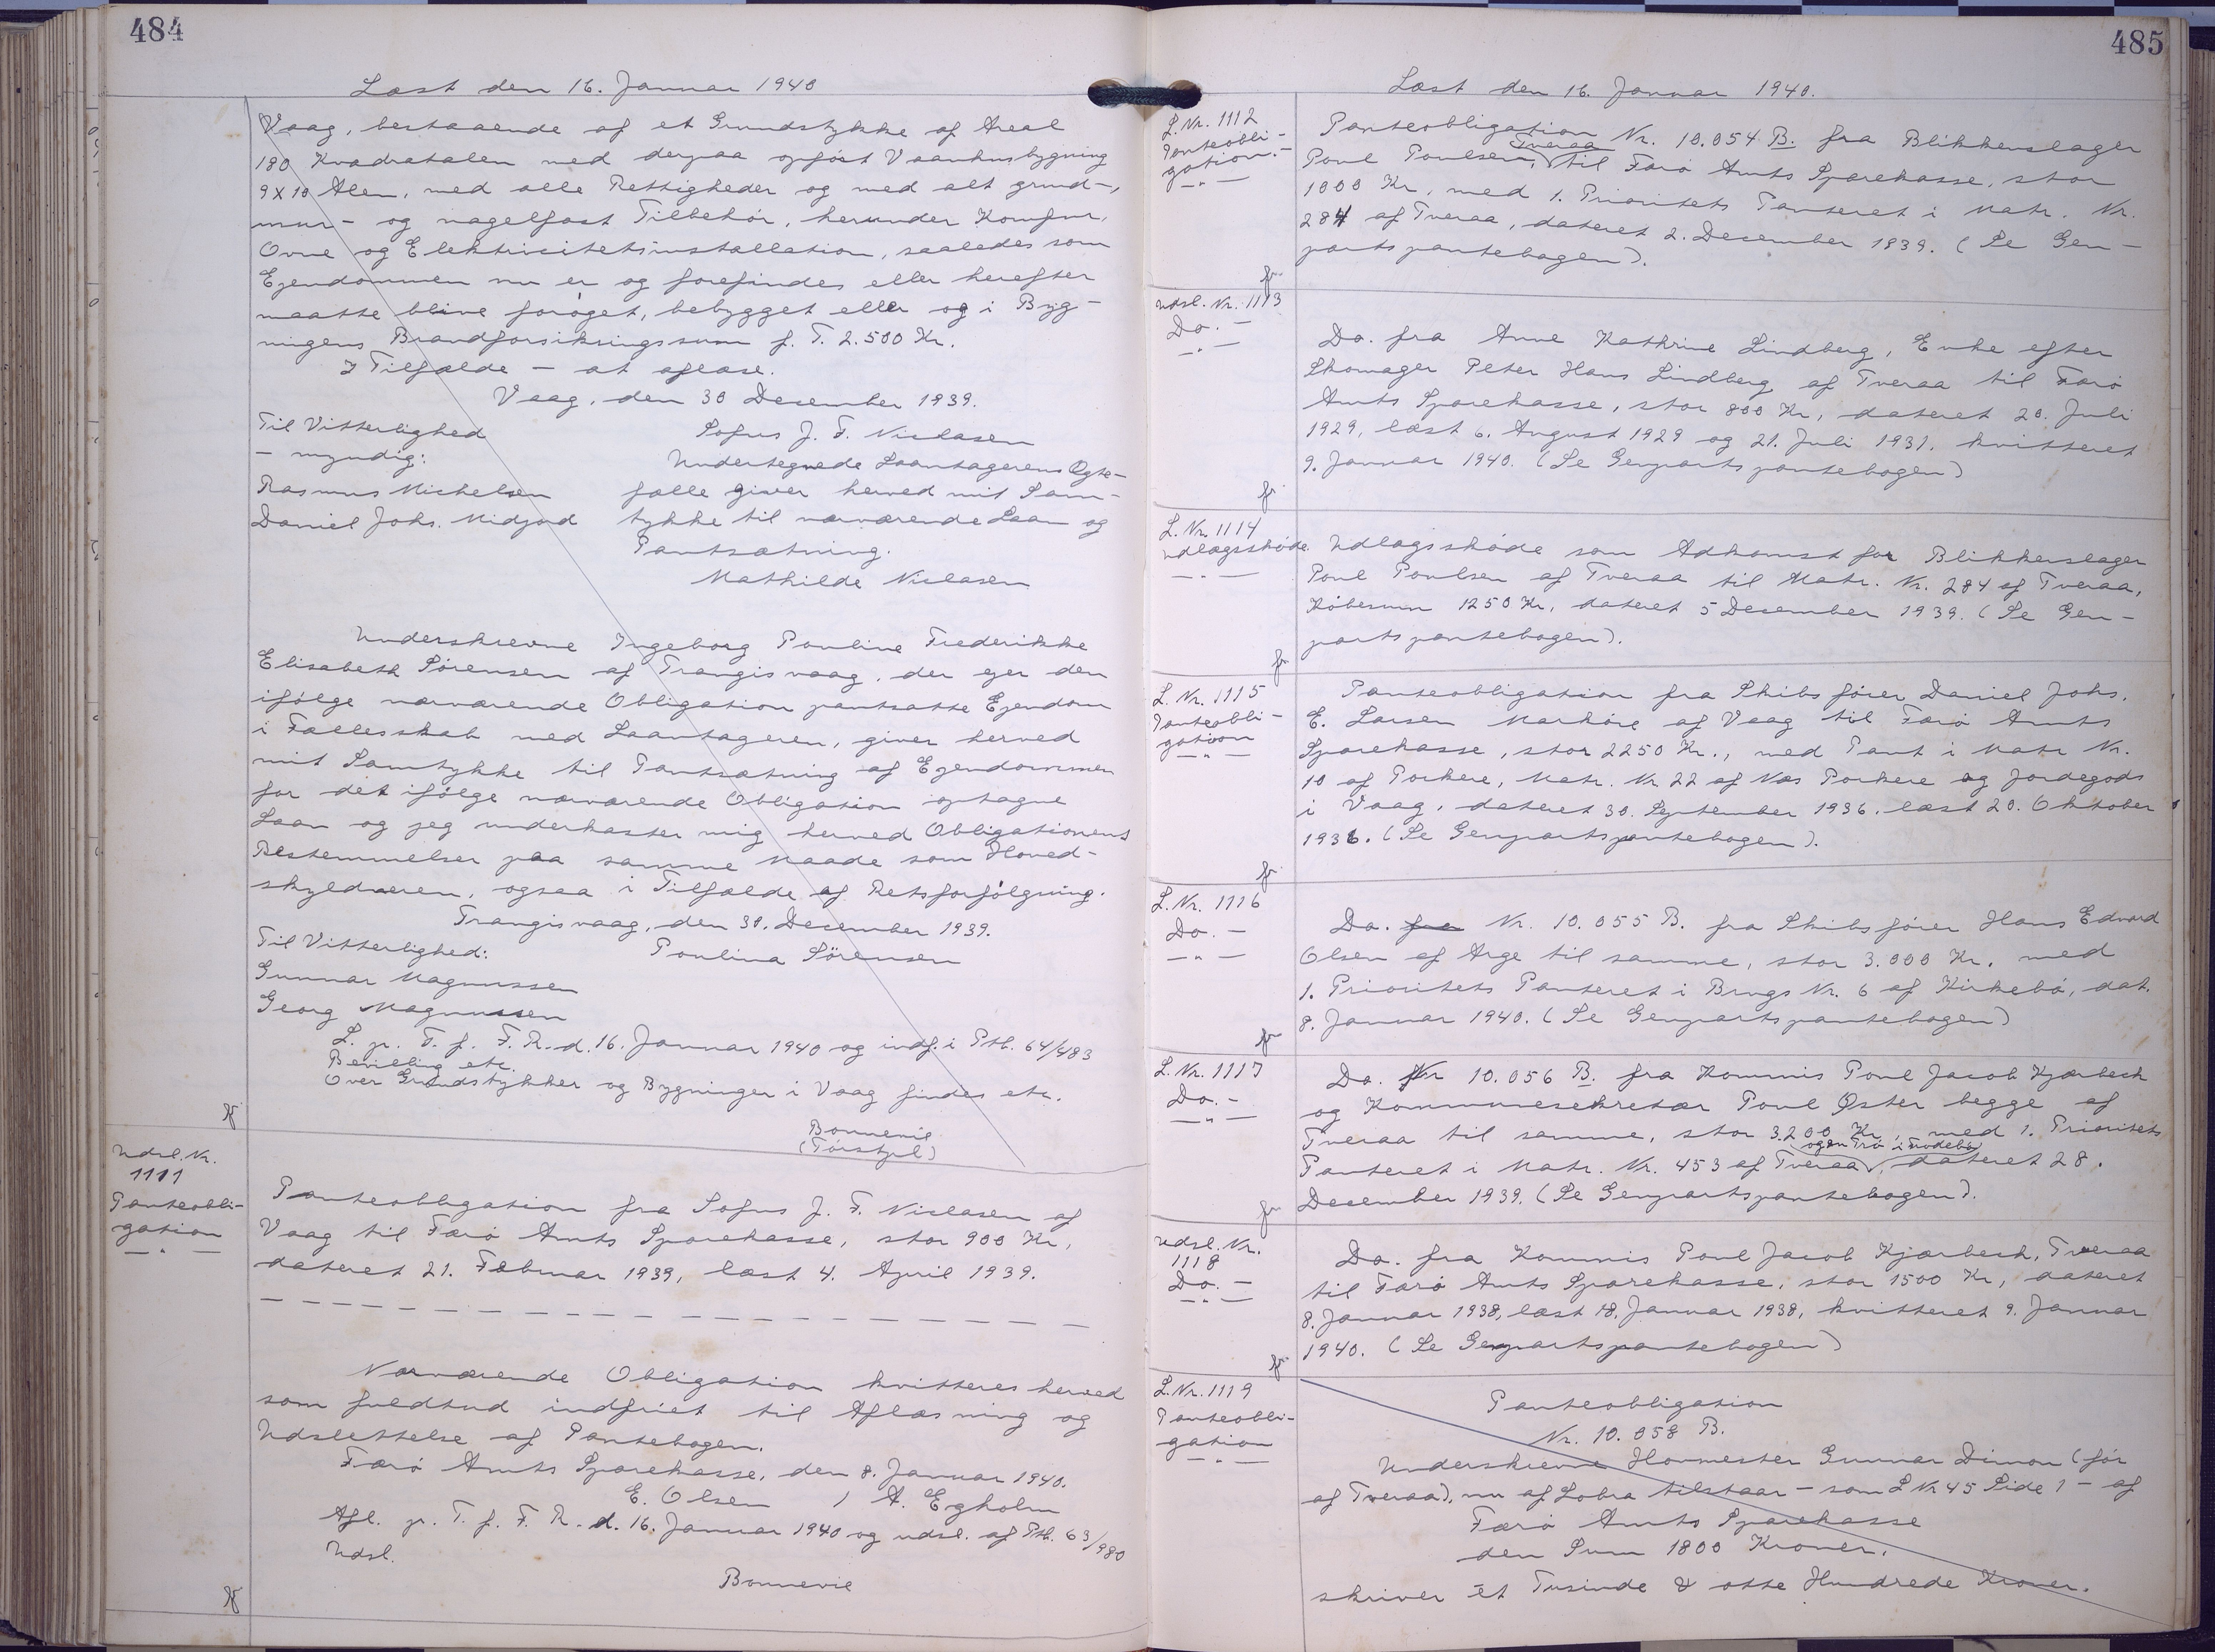 484
Læst den 16. Januar 1940
Vaag, bestaaende af et Grundstykke af Areal
180 Kvadratalen med derpaa opført Vaanhusbygning
9 x 10 Alen, med alle Rettigheder og med alt grund-,
mur- og nagelfast Tilbehør, herunder Komfur,
Ovne og Elektricitetsinstallation, saaledes som
Ejendommen nu er og forefindes eller herefter
maatte blive forøget, bebygget eller og i Byg-
ningens Brandforsikringssum f. T. 2.500 Kr.
I Tilfælde — at aflæse.
Vaag, den 30 December 1939.
Til Vitterlighed
- myndig:
Rasmus Michelsen
Daniel Johs. Midjord
Sofus J. F. Niclasen
Undertegnede Laantagerens Ægte-
fælle giver herved mit Sam-
tykke til nærværende Laan og
Pantsætning.
Mathilde Niclasen
Underskrevne Ingeborg Pauline Frederikke
Elisabeth Sörensen af Trangisvaag, der ejer den
ifølge nærværende Obligation pantsatte Ejendom
i Fællesskab med Laantageren, giver herved
mit Samtykke til Pantsætning af Ejendommen
for det ifølge nærværende Obligation optagne
Laan og jeg underkaster mig herved Obligationens
Bestemmelser paa samme Maade som Hoved-
skyldneren, ogsaa i Tilfælde af Retsforfølgning.
Trangisvaag, den 30. December 1939.
Til Vitterlighed:
Poulina Sörensen
Gunnar Magnussen
Georg Magnussen
L. p. T. f. F. R. d. 16. Januar 1940 og indf. i Ptb. 64/483
Bevilling etc.
Over Grundstykker og Bygninger i Vaag findes etc.
Bonnevie
Udsl. Nr.
1111
Panteobli-
gation
Panteobligation fra Sofus J. F. Niclasen af
Vaag til Færø Amts Sparekasse, stor 900 Kr,
dateret 21. Februar 1939, læst 4. April 1939.
Nærværende Obligation kvitteres herved
som fuldtud indfriet til Aflæsning og
Udslettelse af Pantebogen.
Færø Amts Sparekasse, den 8. Januar 1940.
E. Olsen / A. Egholm
Afl. p. T. f. F. R. d. 16. Januar 1940 og udsl. af Ptb. 63/980
Udsl.
Bonnevie
485
Læst den 16. Januar 1940.
L. Nr. 1112
Panteobli-
gation.-
Panteobligation Nr. 10.054 B. fra Blikkenslager
Poul Poulsen, Tveraa til Færø Amts Sparekasse, stor
1000 Kr, med 1. Prioritets Panteret i Matr. Nr.
284 af Tveraa, dateret 2. December 1939. (Se Gen-
partspantebogen).
Udsl. Nr. 1113
Do. -
Do. fra Anne Kathrine Lindberg, Enke efter
Skomager Peter Hans Lindberg af Tveraa til Færø
Amts Sparekasse, stor 800 Kr, dateret 20. Juli
1929, læst 6. August 1929 og 21. Juli 1931, kvitteret
9. Januar 1940. (Se Genpartspantebogen)
L. Nr. 1114
Udlagsskøde
Udlagsskøde som Adkomst for Blikkenslager
Poul Poulsen af Tveraa til Matr. Nr. 284 af Tveraa,
Købesum 1250 Kr, dateret 5 December 1939. (Se Gen-
partspantebogen).
L. Nr. 1115
Panteobli-
gation
Panteobligation fra Skibsfører Daniel Johs.
E. Larsen Marköre af Vaag til Færø Amts
Sparekasse, stor 2250 Kr., med Pant i Matr Nr.
10 af Porkere, Matr. Nr 22 af Næs Porkere og Jordegods
i Vaag, dateret 30. September 1936, læst 20. Oktober
1936. (Se Genpartspantebogen).
L. Nr. 1116
Do. -
Do. fra Nr. 10.055 B. fra Skibsfører Hans Edvard
Olsen af Arge til samme, stor 3.000 Kr. med
1. Prioritets Panteret i Brugs Nr. 6 af Kirkebö, dat.
8. Januar 1940. (Se Genpartspantebogen)
L. Nr. 1117
Do. -
Do. Nr 10.056 B. fra Kommis Poul Jacob Kjærbech
og Kommunesekretær Poul Øster begge af
Tveraa til samme, stor 3200 Kr, med 1. Prioritets
Panteret i Matr. Nr. 453 af Tveraa, og en Trø i Frodebø dateret 28.
December 1939. (Se Genpartspantebogen).
Udsl. Nr.
1118
Do. -
Do. fra Kommis Poul Jacob Kjærbech, Tveraa
til Færø Amts Sparekasse, stor 1500 Kr, dateret
8. Januar 1938, læst 18. Januar 1938, kvitteret 9. Januar
1940. (Se Genpartspantebogen)
L. Nr. 1119
Panteobli-
gation
Panteobligation
Nr. 10.058 B.
Underskrevne Hovmester Gunnar Dimon (før
af Tveraa), nu af Lobra tilstaar - som L Nr 45 Side 1 - af
Færø Amts Sparekasse
den Sum 1800 Kroner,
skriver et Tusinde & otte Hundrede Kroner.